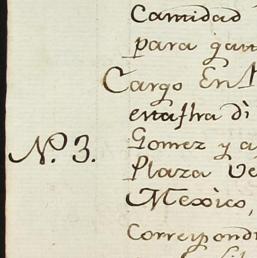 Cantidad
para gan
Cargo En
entassra di
N.º 3. Gomez y a
Plaza Ve
Mexico,
Correspond